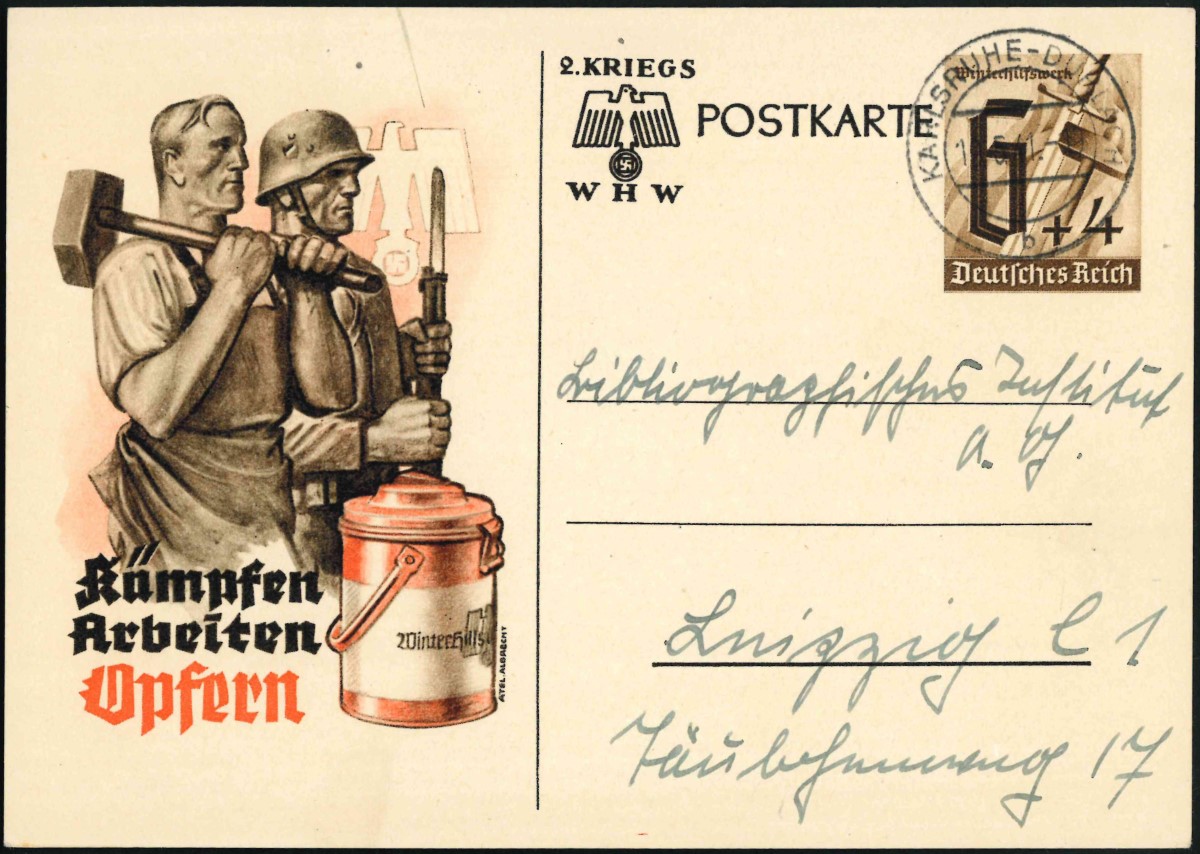 Kämpfen
Arbeiten
Opfern
Winterhilfs
ATEL. ALBRECHT
2. KRIEGS
WHW
POSTKARTE
Winterhilfswerk
6 + 4
Deutsches Reich
KARLSRUHE-DURLACH
b
Bibliographisches Institut
A. G.
Leipzig C 1
Täubchenweg 17